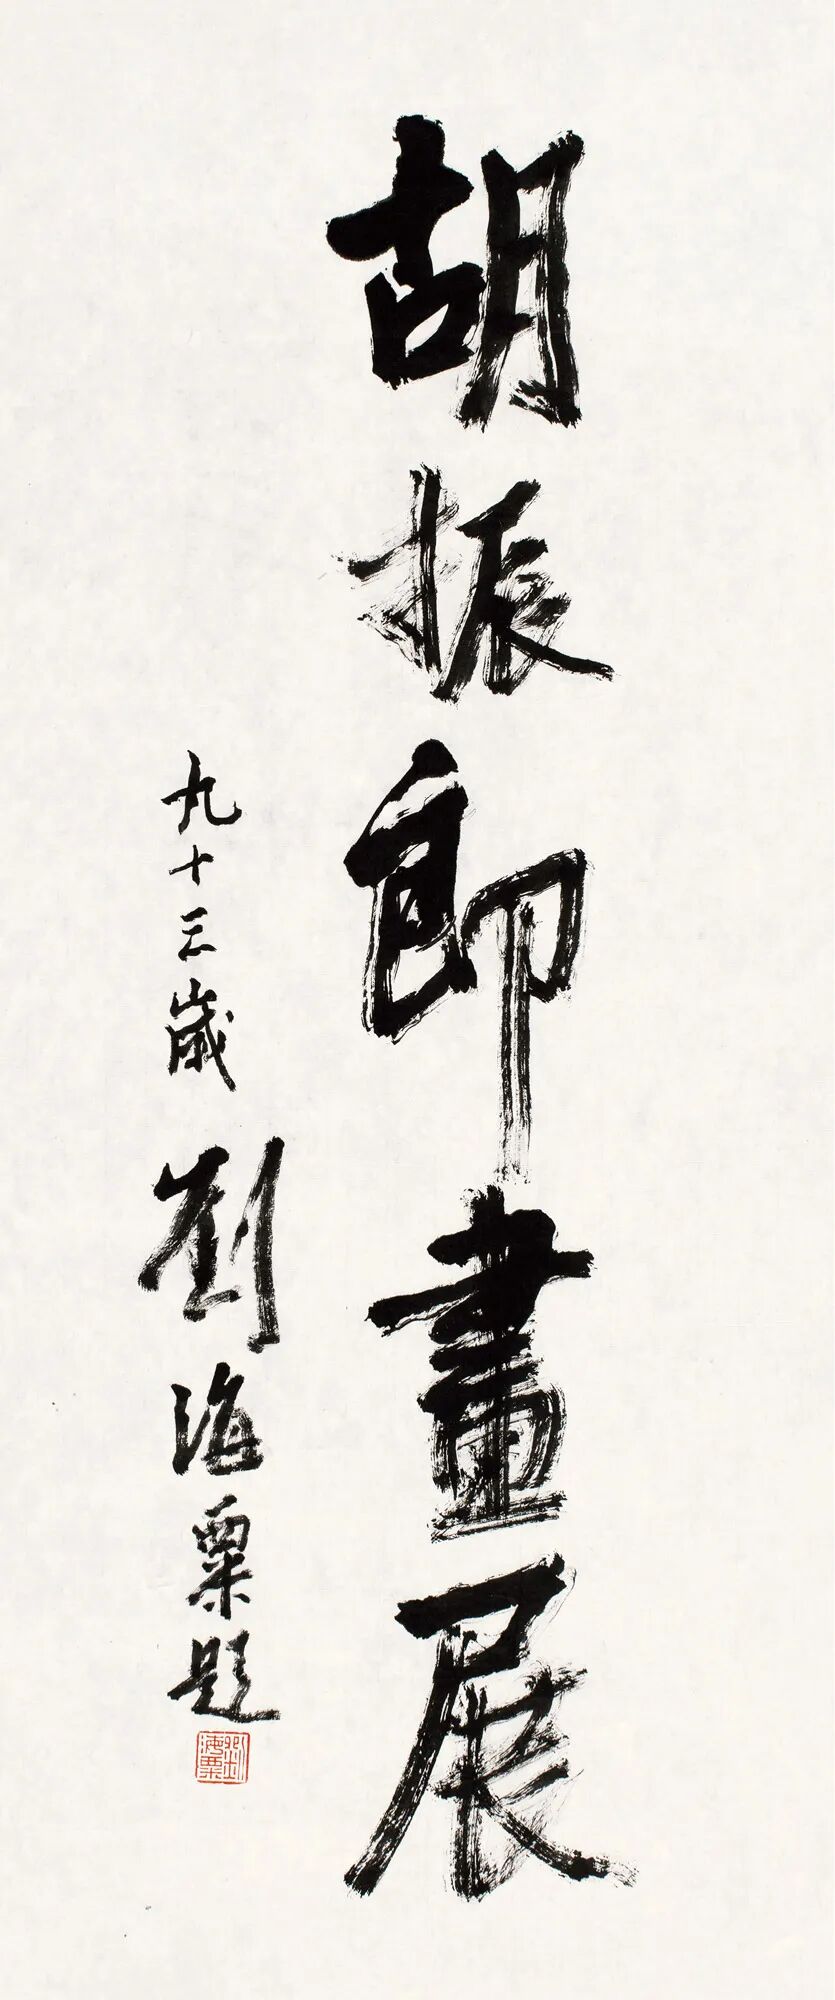 胡振郎畫展
九十三歲劉海粟題
劉海粟